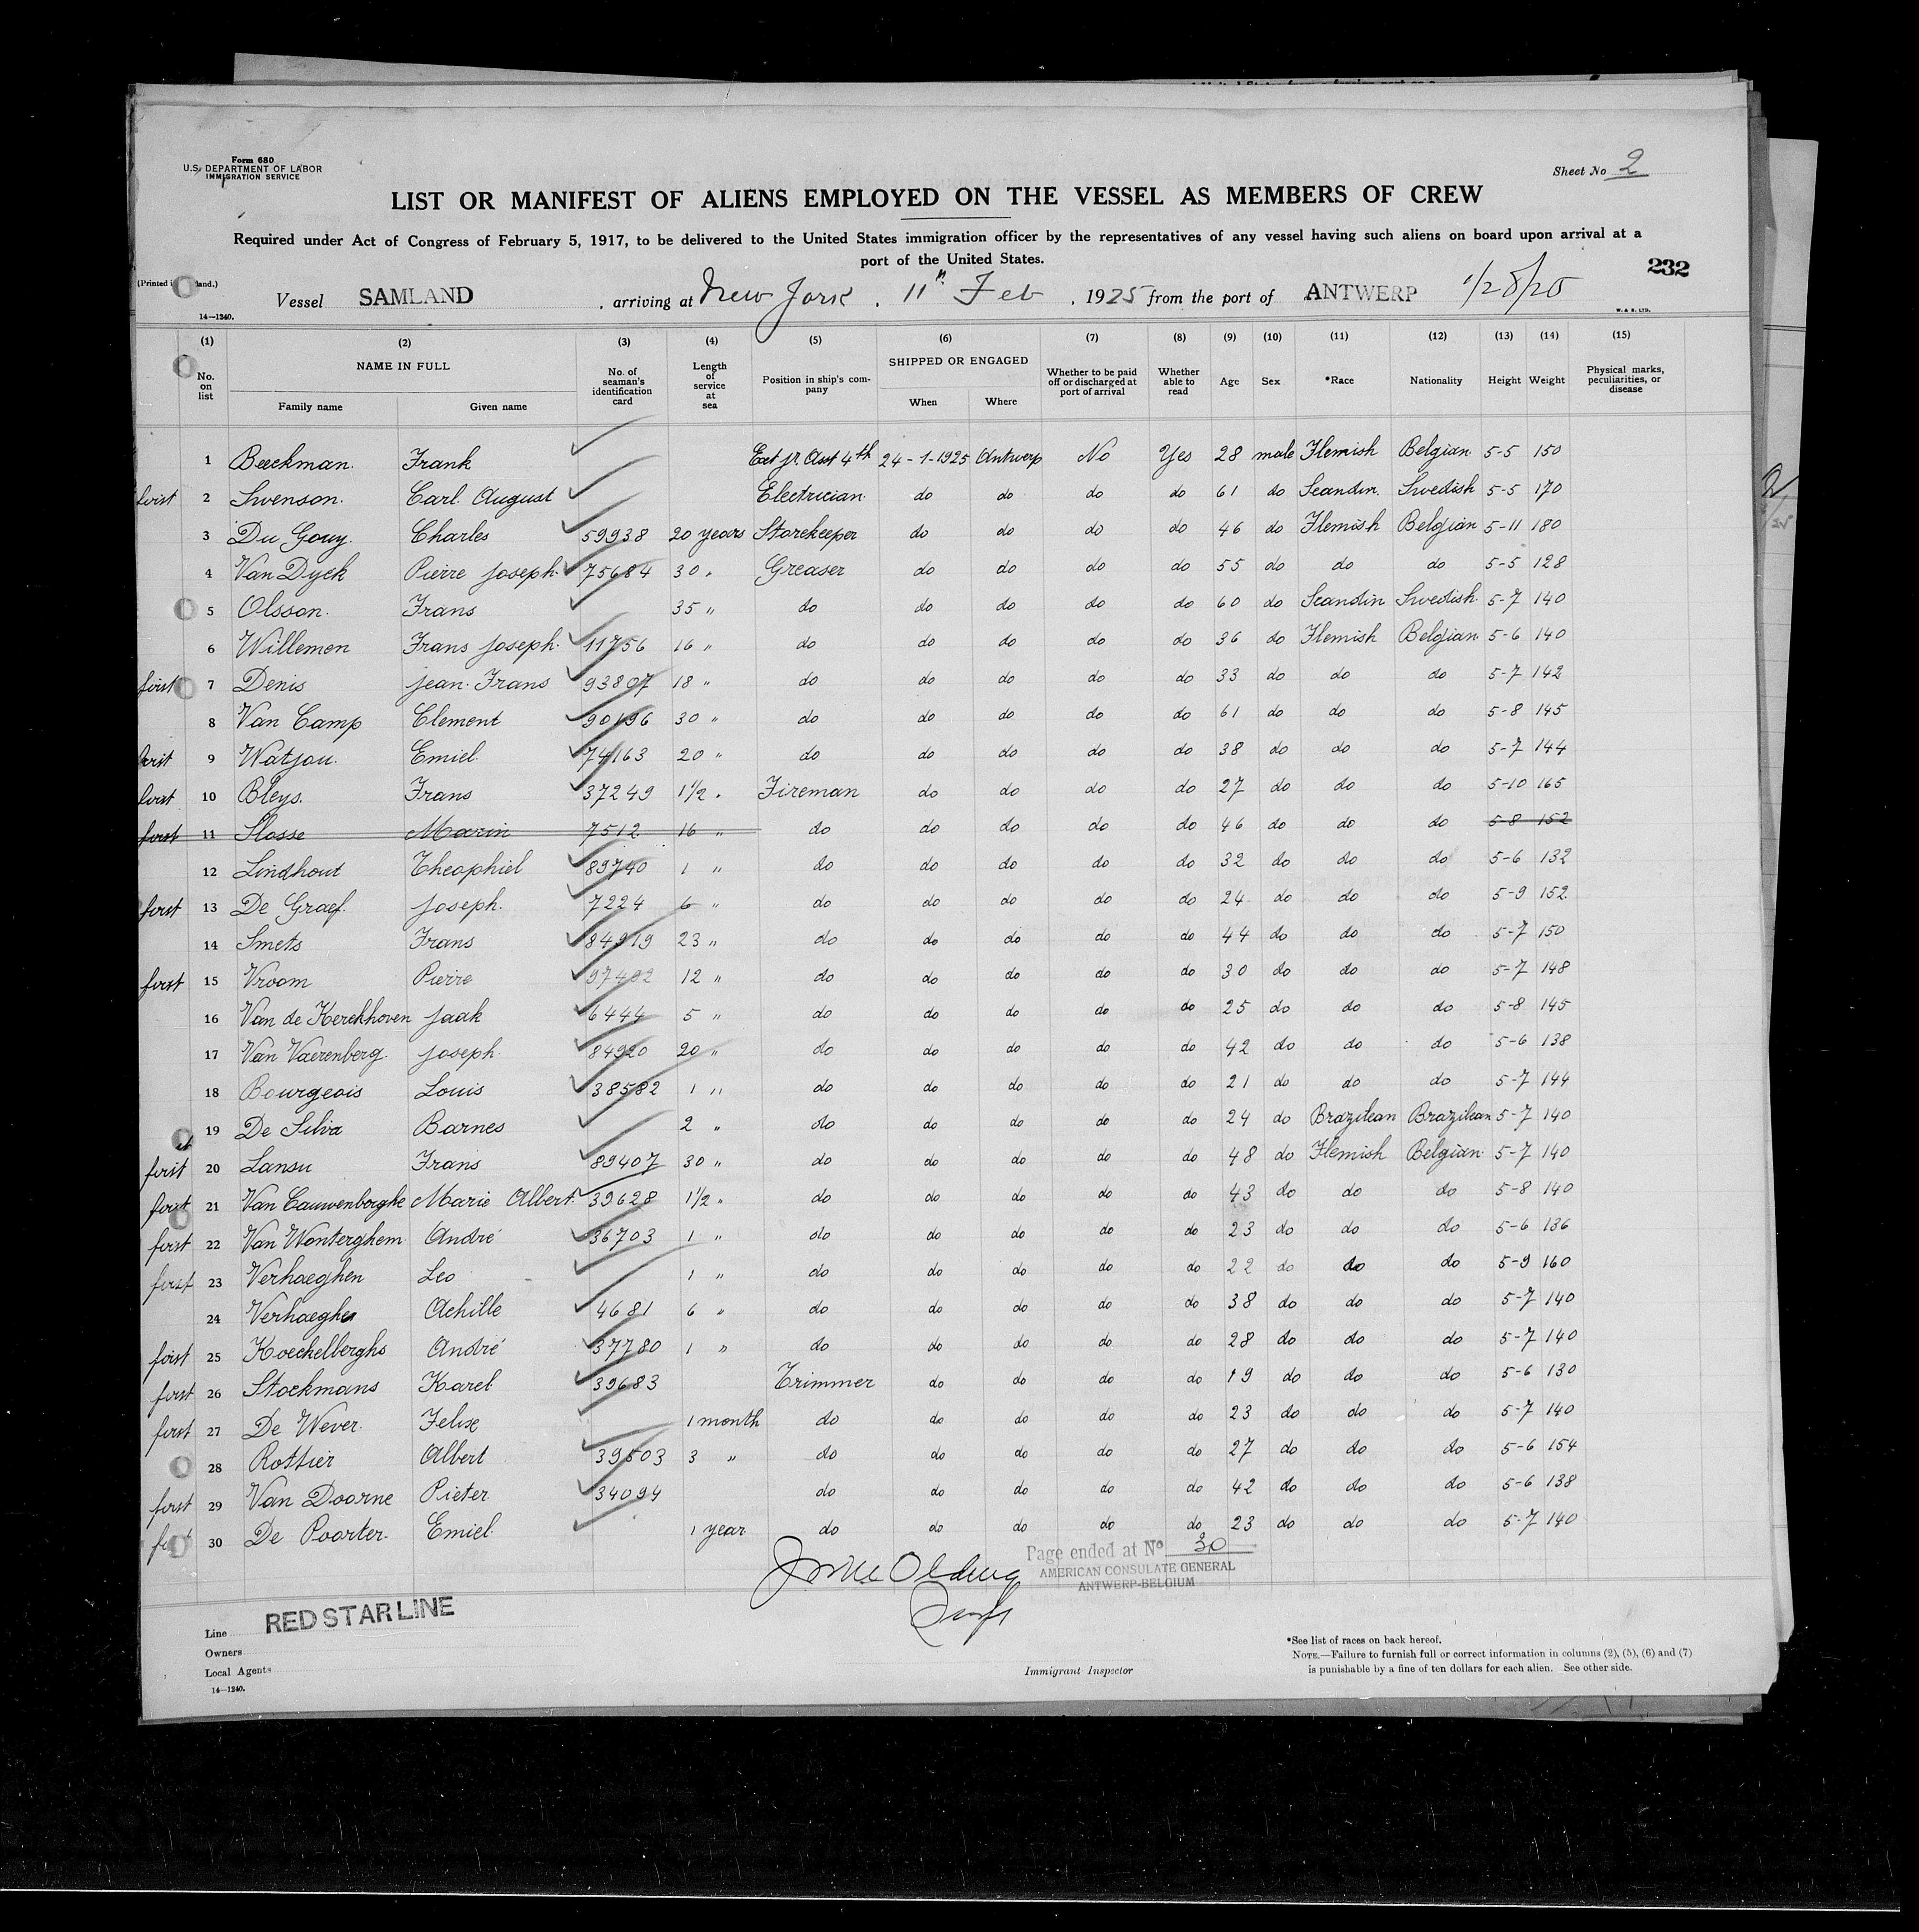 Form 680
U.S. DEPARTMENT OF LABOR
IMMIGRATION SERVICE
Sheet No 2
LIST OR MANIFEST OF ALIENS EMPLOYED ON THE VESSEL AS MEMBERS OF CREW
Required under Act of Congress of February 5, 1917, to be delivered to the United States immigration officer by the representatives of any vessel having such aliens on board upon arrival at a
port of the United States.
232
Vessel SAMLAND, arriving at New York, 11th Feb, 1925 from the port of ANTWERP 1/28/25
14—1240. W. & S. LTD.
(1) (2) (3) (4) (5) (6) (7) (8) (9) (10) (11) (12) (13) (14) (15)
No. on list NAME IN FULL Family name Given name No. of seaman's identification card Length of service at sea Position in ship's company SHIPPED OR ENGAGED When Where Whether to be paid off or discharged at port of arrival Whether able to read Age Sex *Race Nationality Height Weight Physical marks, peculiarities, or disease
1 Beeckman. Frank Ext jr. Asst 4th 24-1-1925 Antwerp No Yes 28 male Flemish Belgian 5-5 150
first 2 Swenson. Carl. August Electrician do do do do 61 do Scandin. Swedish 5-5 170
3 Du Gouy. Charles 59938 20 years Storekeeper do do do do 46 do Flemish Belgian 5-11 180
4 Van Dyck Pierre Joseph 75684 30 " Greaser do do do do 55 do do do 5-5 128
5 Olsson. Frans 35 " do do do do do 60 do Scandin Swedish 5-7 140
6 Willemen Frans Joseph 11756 16 " do do do do do 36 do Flemish Belgian 5-6 140
first 7 Denis Jean Frans 93807 18 " do do do do do 33 do do do 5-7 142
8 Van Camp Clement 90196 30 " do do do do do 61 do do do 5-8 145
first 9 Watjou. Emiel. 74163 20 " do do do do do 38 do do do 5-7 144
first 10 Bleys. Frans 37249 1½ " Fireman do do do do 27 do do do 5-10 165
first 11 Slosse Marin 7512 16 " do do do do do 46 do do do 5-8 152
12 Lindhout Theophiel 89740 1 " do do do do do 32 do do do 5-6 132
first 13 De Graef. Joseph. 7224 6 " do do do do do 24 do do do 5-9 152
14 Smets Frans 84919 23 " do do do do do 44 do do do 5-7 150
first 15 Vroom Pierre 97402 12 " do do do do do 30 do do do 5-7 148
16 Van de Kerckhoven Jaak 6444 5 " do do do do do 25 do do do 5-8 145
17 Van Vaerenberg. Joseph 84920 20 " do do do do do 42 do do do 5-6 138
18 Bourgeois Louis 38582 1 " do do do do do 21 do do do 5-7 144
19 De Silva Barnes 2 " do do do do do 24 do Brazilean Brazilean 5-7 140
first 20 Lansu Frans 89407 30 " do do do do do 48 do Flemish Belgian 5-7 140
first 21 Van Cauwenberghe Marie Albert. 39628 1½ " do do do do do 43 do do do 5-8 140
first 22 Van Wonterghem André 36703 1 " do do do do do 23 do do do 5-6 136
first 23 Verhaeghen Leo 1 " do do do do do 22 do do do 5-9 160
24 Verhaeghe Achille 4681 6 " do do do do do 38 do do do 5-7 140
first 25 Koeckelberghs André 37780 1 " do do do do do 28 do do do 5-7 140
first 26 Stockmans Karel 39683 Trimmer do do do do 19 do do do 5-6 130
first 27 De Wever. Felix 1 month do do do do do 23 do do do 5-7 140
28 Rottier Albert 39503 3 " do do do do do 27 do do do 5-6 154
first 29 Van Doorne Pieter 34094 do do do do do 42 do do do 5-6 138
30 De Poorter. Emiel. 1 year do do do do do 23 do do do 5-7 140
Page ended at No 30
AMERICAN CONSULATE GENERAL
ANTWERP-BELGIUM
Line RED STAR LINE
Owners
Local Agents
14—1240.
Immigrant Inspector
*See list of races on back hereof.
NOTE.—Failure to furnish full or correct information in columns (2), (5), (6) and (7)
is punishable by a fine of ten dollars for each alien. See other side.